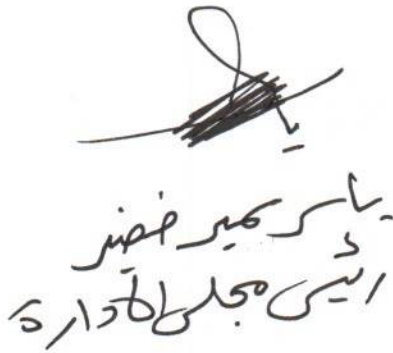 ياسر سمير خضير
رئيس مجلس الادارة